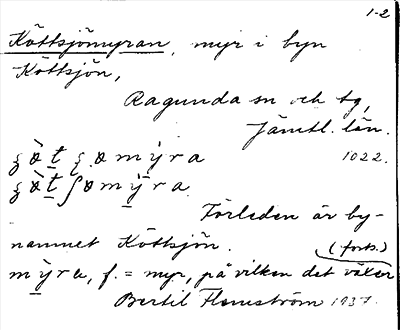 1-2
Köttsjömyran, myr i byn
Köttsjön,
Ragunda sn och tg,
Jämtl. län.
1022.
Förleden är by-
namnet Köttsjön. (forts.)
f. = myr, på vilken det växer
Bertil Flemström 1937.